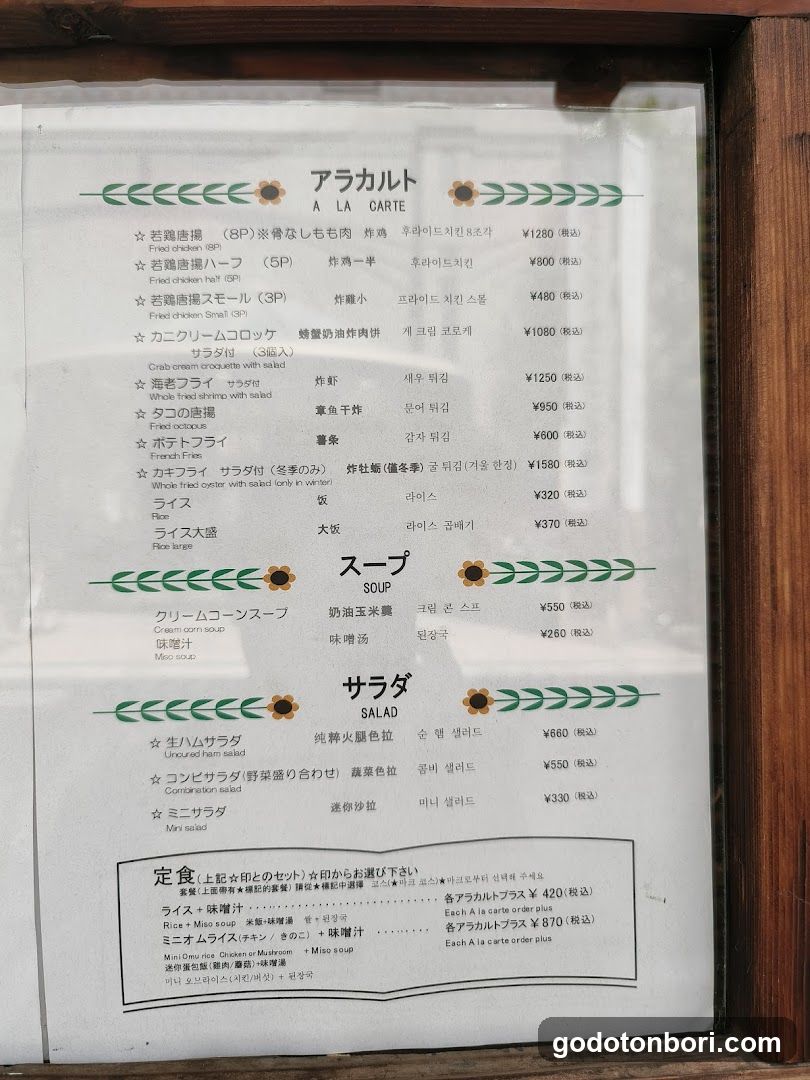 アラカルト
A LA CARTE
☆ 若鶏唐揚 (8P)※骨なしもも肉 炸鸡 후라이드치킨 8조각 ¥1280 (税込)
Fried chicken (8P)
☆ 若鶏唐揚ハーフ (5P) 炸鸡一半 후라이드치킨 ¥800 (税込)
Fried chicken half (5P)
☆ 若鶏唐揚スモール (3P) 炸雞小 프라이드 치킨 스몰 ¥480 (税込)
Fried chicken Small (3P)
☆ カニクリームコロッケ 螃蟹奶油炸肉饼 게 크림 코로케 ¥1080 (税込)
サラダ付 (3個入)
Crab cream croquette with salad
☆ 海老フライ サラダ付 炸虾 새우 튀김 ¥1250 (税込)
Whole fried shrimp with salad
☆ タコの唐揚 章鱼干炸 문어 튀김 ¥950 (税込)
Fried octopus
☆ ポテトフライ 薯条 감자 튀김 ¥600 (税込)
French Fries
☆ カキフライ サラダ付 (冬季のみ) 炸牡蛎(僅冬季) 굴 튀김(겨울 한정) ¥1580 (税込)
Whole fried oyster with salad (only in winter)
ライス 饭 라이스 ¥320 (税込)
Rice
ライス大盛 大饭 라이스 곱배기 ¥370 (税込)
Rice large
スープ
SOUP
クリームコーンスープ 奶油玉米羹 크림 콘 스프 ¥550 (税込)
Cream corn soup
味噌汁 味噌汤 된장국 ¥260 (税込)
Miso soup
サラダ
SALAD
☆ 生ハムサラダ 纯粹火腿色拉 순 햄 샐러드 ¥660 (税込)
Uncured ham salad
☆ コンビサラダ(野菜盛り合わせ) 蔬菜色拉 콤비 샐러드 ¥550 (税込)
Combination salad
☆ ミニサラダ 迷你沙拉 미니 샐러드 ¥330 (税込)
Mini salad
定食(上記☆印とのセット) ☆印からお選び下さい
套餐(上面帶有★標記的套餐) 請從★標記中選擇 코스(★마크 코스)★마크로부터 선택해 주세요
ライス + 味噌汁 ・・・・・・・・・・・・・・・・・・・・・・・・ 各アラカルトプラス ¥ 420(税込)
Rice + Miso soup 米飯+味噌湯 쌀 + 된장국 Each A la carte order plus
ミニオムライス(チキン / きのこ) + 味噌汁 ・・・・・・・・ 各アラカルトプラス ¥ 870(税込)
Mini Omu rice Chicken or Mushroom + Miso soup Each A la carte order plus
迷你蛋包飯(雞肉/蘑菇)+味噌湯
미니 오브라이스(치킨/버섯) + 된장국
godotonbori.com